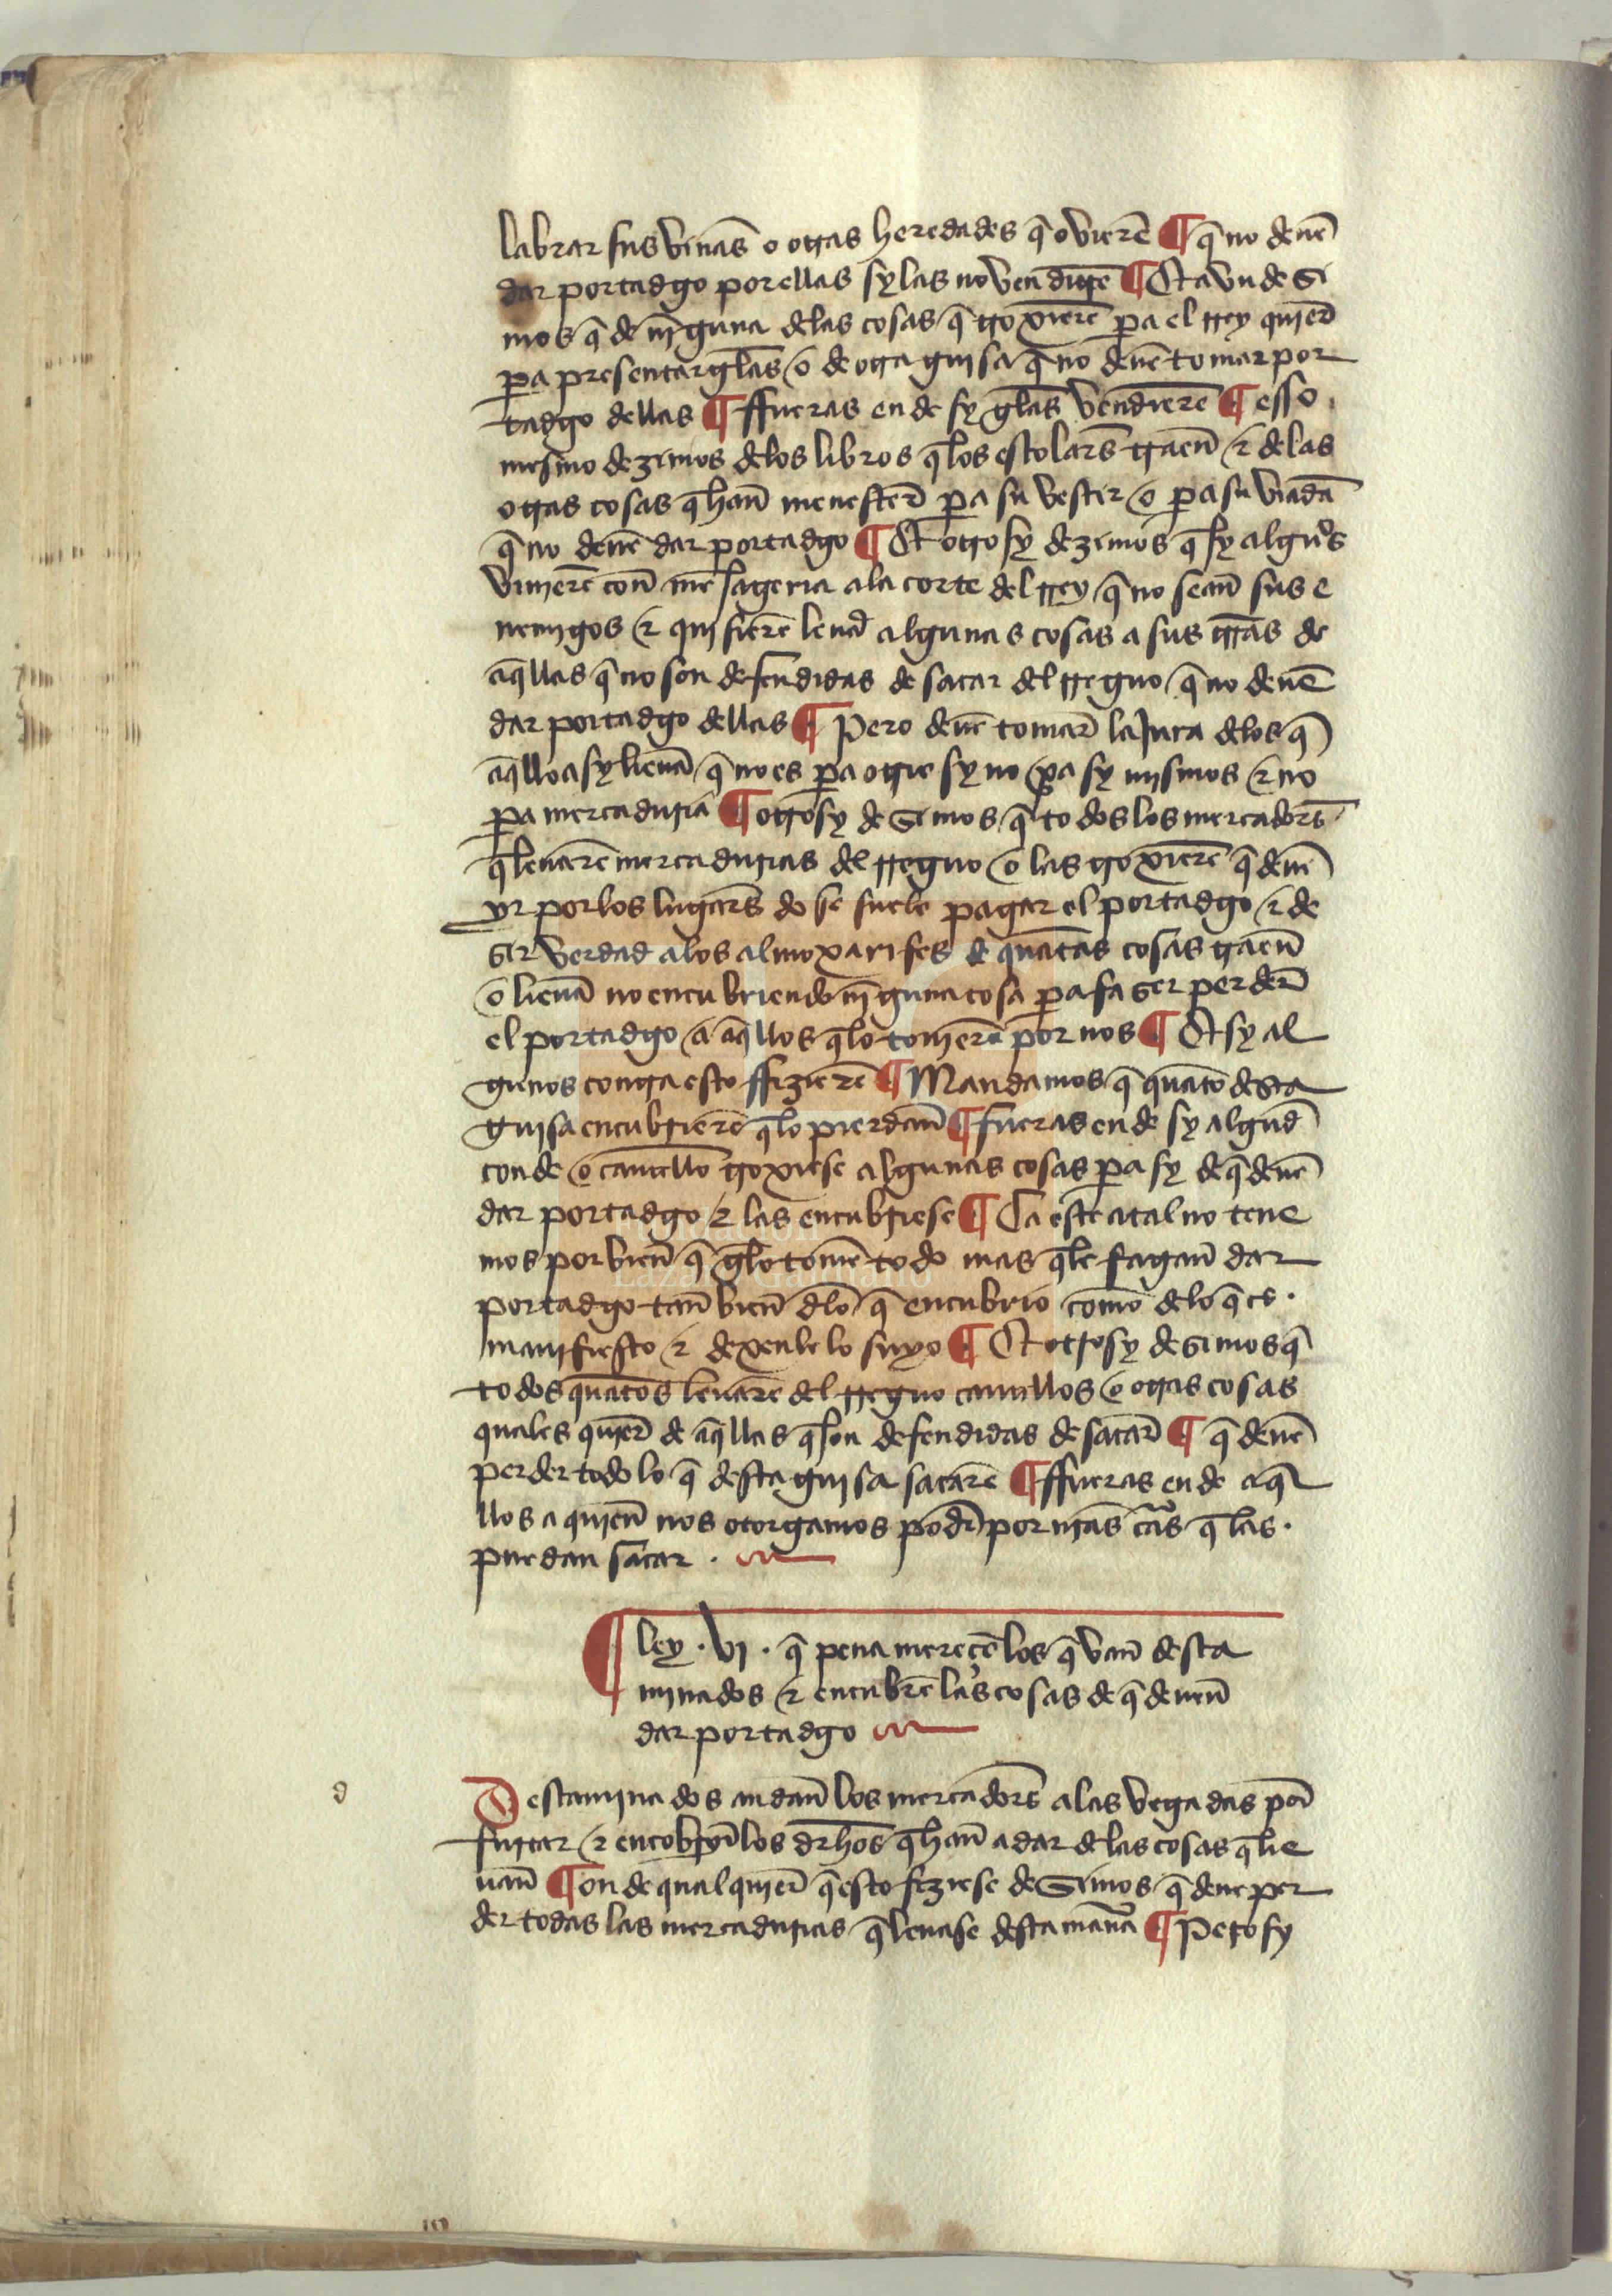 labrar sus vinas̄ o otras heredades q̄ ovierē ¶ q̄ no deuē
dar portadgo por ellas sy las no vendierē ¶ Et avn desi
mos q̄ de nīguna delas cosas q̄ troxierē pa el rrey quier̄
pa presentargelas̄ o de otra guisa q̄ no deuē tomar por
tadgo dellas ¶ ffueras ende sy gelas̄ vendierē ¶ esso
mesmo dezimos delos libros q̄ los escolars̄ traen̄ & delas
otras cosas q̄ han̄ menester̄ pa su vestir o pa su viada
q̄ no deuē dar portadgo ¶ Et otrosy dezimos q̄ sy algus̄
vinierē con̄ mēsageria ala corte del rrey q̄ no sean̄ sus e
nemigos & quisierē leuar̄ algunas cosas a sus trras̄ de
aq̄llas q̄ no son defendidas de sacar del rregno q̄ no deuē
dar portadgo dellas ¶ Pero deuē tomar̄ la Jura delos q̄
aq̄llo asy lieuā q̄ no es pa otrie sy no pa sy mismos & no
pa mercaduria ¶ otrosy desimos q̄ todos los mercadors̄
q̄ leuarē mercadurias del rregno o las troxierē q̄ deuē
yr por los lugars̄ do se suele pagar el portadgo & de
sir verdad alos almoxarifes de quātas cosas traen̄
o lieuā no encubriendo nīguna cosa pa faser perder̄
el portadgo a aq̄llos q̄ lo tomerē por nos ¶ Et sy al
gunos contra esto ffizierē ¶ Mandamos q̄ quāto desta
guisa encubrierē q̄ lo pierdan̄ ¶ fueras ende sy algud̄
conde o cauallo troxiese algunas cosas pa sy de q̄ deuē
dar portadgo & las encubriese ¶ Ca este atal no tene
mos por bien̄ q̄ gelo tomē todo mas q̄ le fagan̄ dar
portadgo tan̄ bien̄ dlo q̄ encubrio como delo q̄ es .
manifiesto & dexenle lo suyo ¶ Et otrosy desimos q̄
todos quātos leuarē del rregno cauallos o otras cosas
quales quier̄ de aq̄llas q̄ son defendidas de sacar̄ ¶ q̄ deuē
perder todo lo q̄ desta guisa sacarē ¶ ffueras ende aq̄
llos a quien̄ nos otorgamos podr̄ por nr̄as car̄s q̄ las .
puedan sacar .
¶ ley . vi . q̄ pena merecē los q̄ van̄ desca
minados & encubrē las cosas de q̄ deuen̄
dar portadgo
d
Descaminados andan̄ los mercadors̄ alas vegadas por̄
furtar & encobrir̄ los drhos̄ q̄ han̄ a dar delas cosas q̄ lie
uan̄ ¶ onde qual quier̄ q̄ esto fiziese desimos q̄ deue per
der todas las mercadurias q̄ leuase desta manr̄a ¶ Pero sy